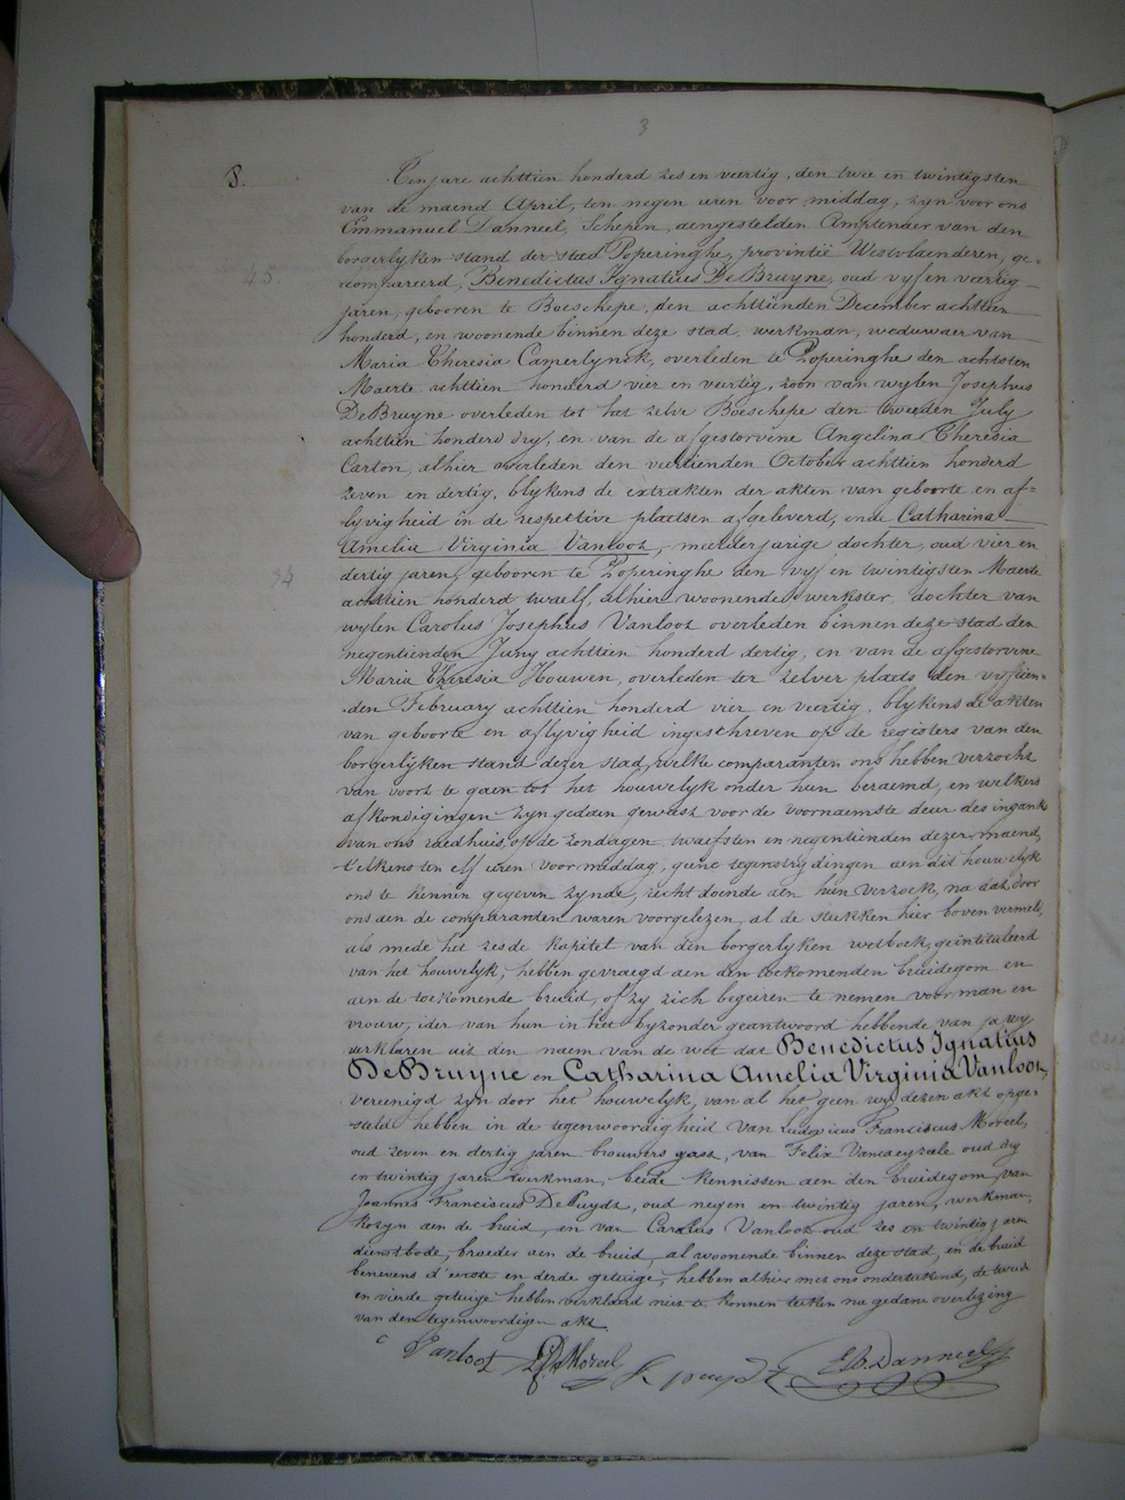 3
8.
Ten jare achttien honderd zes en veertig, den twee en twintigsten
van de maend April, ten negen uren voor middag, zyn voor ons
Emmanuel Danneel, Schepen, aengestelden Amptenaer van den
borgerlyken stand der stad Poperinghe, provintie Westvlaenderen, ge=
45.
compareerd, Benedictus Ignatius De Bruyne, oud vyf en veertig
jaren, gebooren te Boeschepe, den achttienden December achttien
honderd, en woonende binnen deze stad, werkman, weduwaer van
Maria Theresia Camerlynck, overleden te Poperinghe den achtsten
Maerte achttien honderd vier en veertig, zoon van wylen Josephus
De Bruyne overleden tot het zelve Boeschepe den tweeden July
achttien honderd dry, en van de afgestorvene Angelina Theresia
Carton, alhier overleden den veertienden October achttien honderd
zeven en dertig, blykens de extrakten der akten van geboorte en af=
lyvigheid in de respective plaetsen afgeleverd, ende Catharina
Amelia Virginia Vanloot, meerderjarige dochter, oud vier en
34
dertig jaren, gebooren te Poperinghe den vyf en twintigsten Maerte
achttien honderd twaelf, alhier woonende, werkster, dochter van
wylen Carolus Josephus Vanloot overleden binnen deze stad den
negentienden Juny achttien honderd dertig, en van de afgestorvene
Maria Theresia Houwen, overleden ter zelver plaets den vyftien=
den February achttien honderd vier en veertig, blykens de akten
van geboorte en aflyvigheid ingeschreven op de registers van den
borgerlyken stand dezer stad, welke comparanten ons hebben verzocht
van voort te gaen tot het houwelyk onder hun beraemd, en welkers
afkondigingen zyn gedaen geweest voor de voornaemste deur des ingank
van ons raedhuis, op de zondagen twaelfsten en negentienden dezer maend,
t'elkens ten elf uren voor middag, geene tegenstrydingen aen dit houwelyk
ons te kennen gegeven zynde, recht doende aen hun verzoek, na dat door
ons aen de comparanten waren voorgelezen, al de stukken hier boven vermeld,
als mede het zesde kapitel van den borgerlyken wetboek, geintituleerd
van het houwelyk, hebben gevraegd aen den toekomenden bruidegom en
aen de toekomende bruid, of zy zich begeiren te nemen voor man en
vrouw, ider van hun in het byzonder geantwoord hebbende van ja, wy
verklaren uit den naem van de wet dat Benedictus Ignatius
De Bruyne en Catharina Amelia Virginia Vanloot,
vereenigd zyn door het houwelyk, van al het geen wy dezen akt opge=
steld hebben in de tegenwoordigheid van Ludovicus Franciscus Moreel,
oud zeven en dertig jaren brouwers gast, van Felix Vancaeyzeele oud dry
en twintig jaren werkman, beide kennissen aen den bruidegom, van
Joannes Franciscus De Puydt, oud negen en twintig jaren, werkman,
kozyn aen de bruid, en van Carolus Vanloot oud zes en twintig jaren
dienstbode, broeder aen de bruid, al woonende binnen deze stad, en de bruid
benevens d'eerste en derde getuige, hebben alhier met ons onderteekend, de tweede
en vierde getuige hebben verklaerd niet te konnen teeken na gedane overlezing
van den tegenwoordigen akt.
C Vanloot Moreel puydt E. B. Danneel